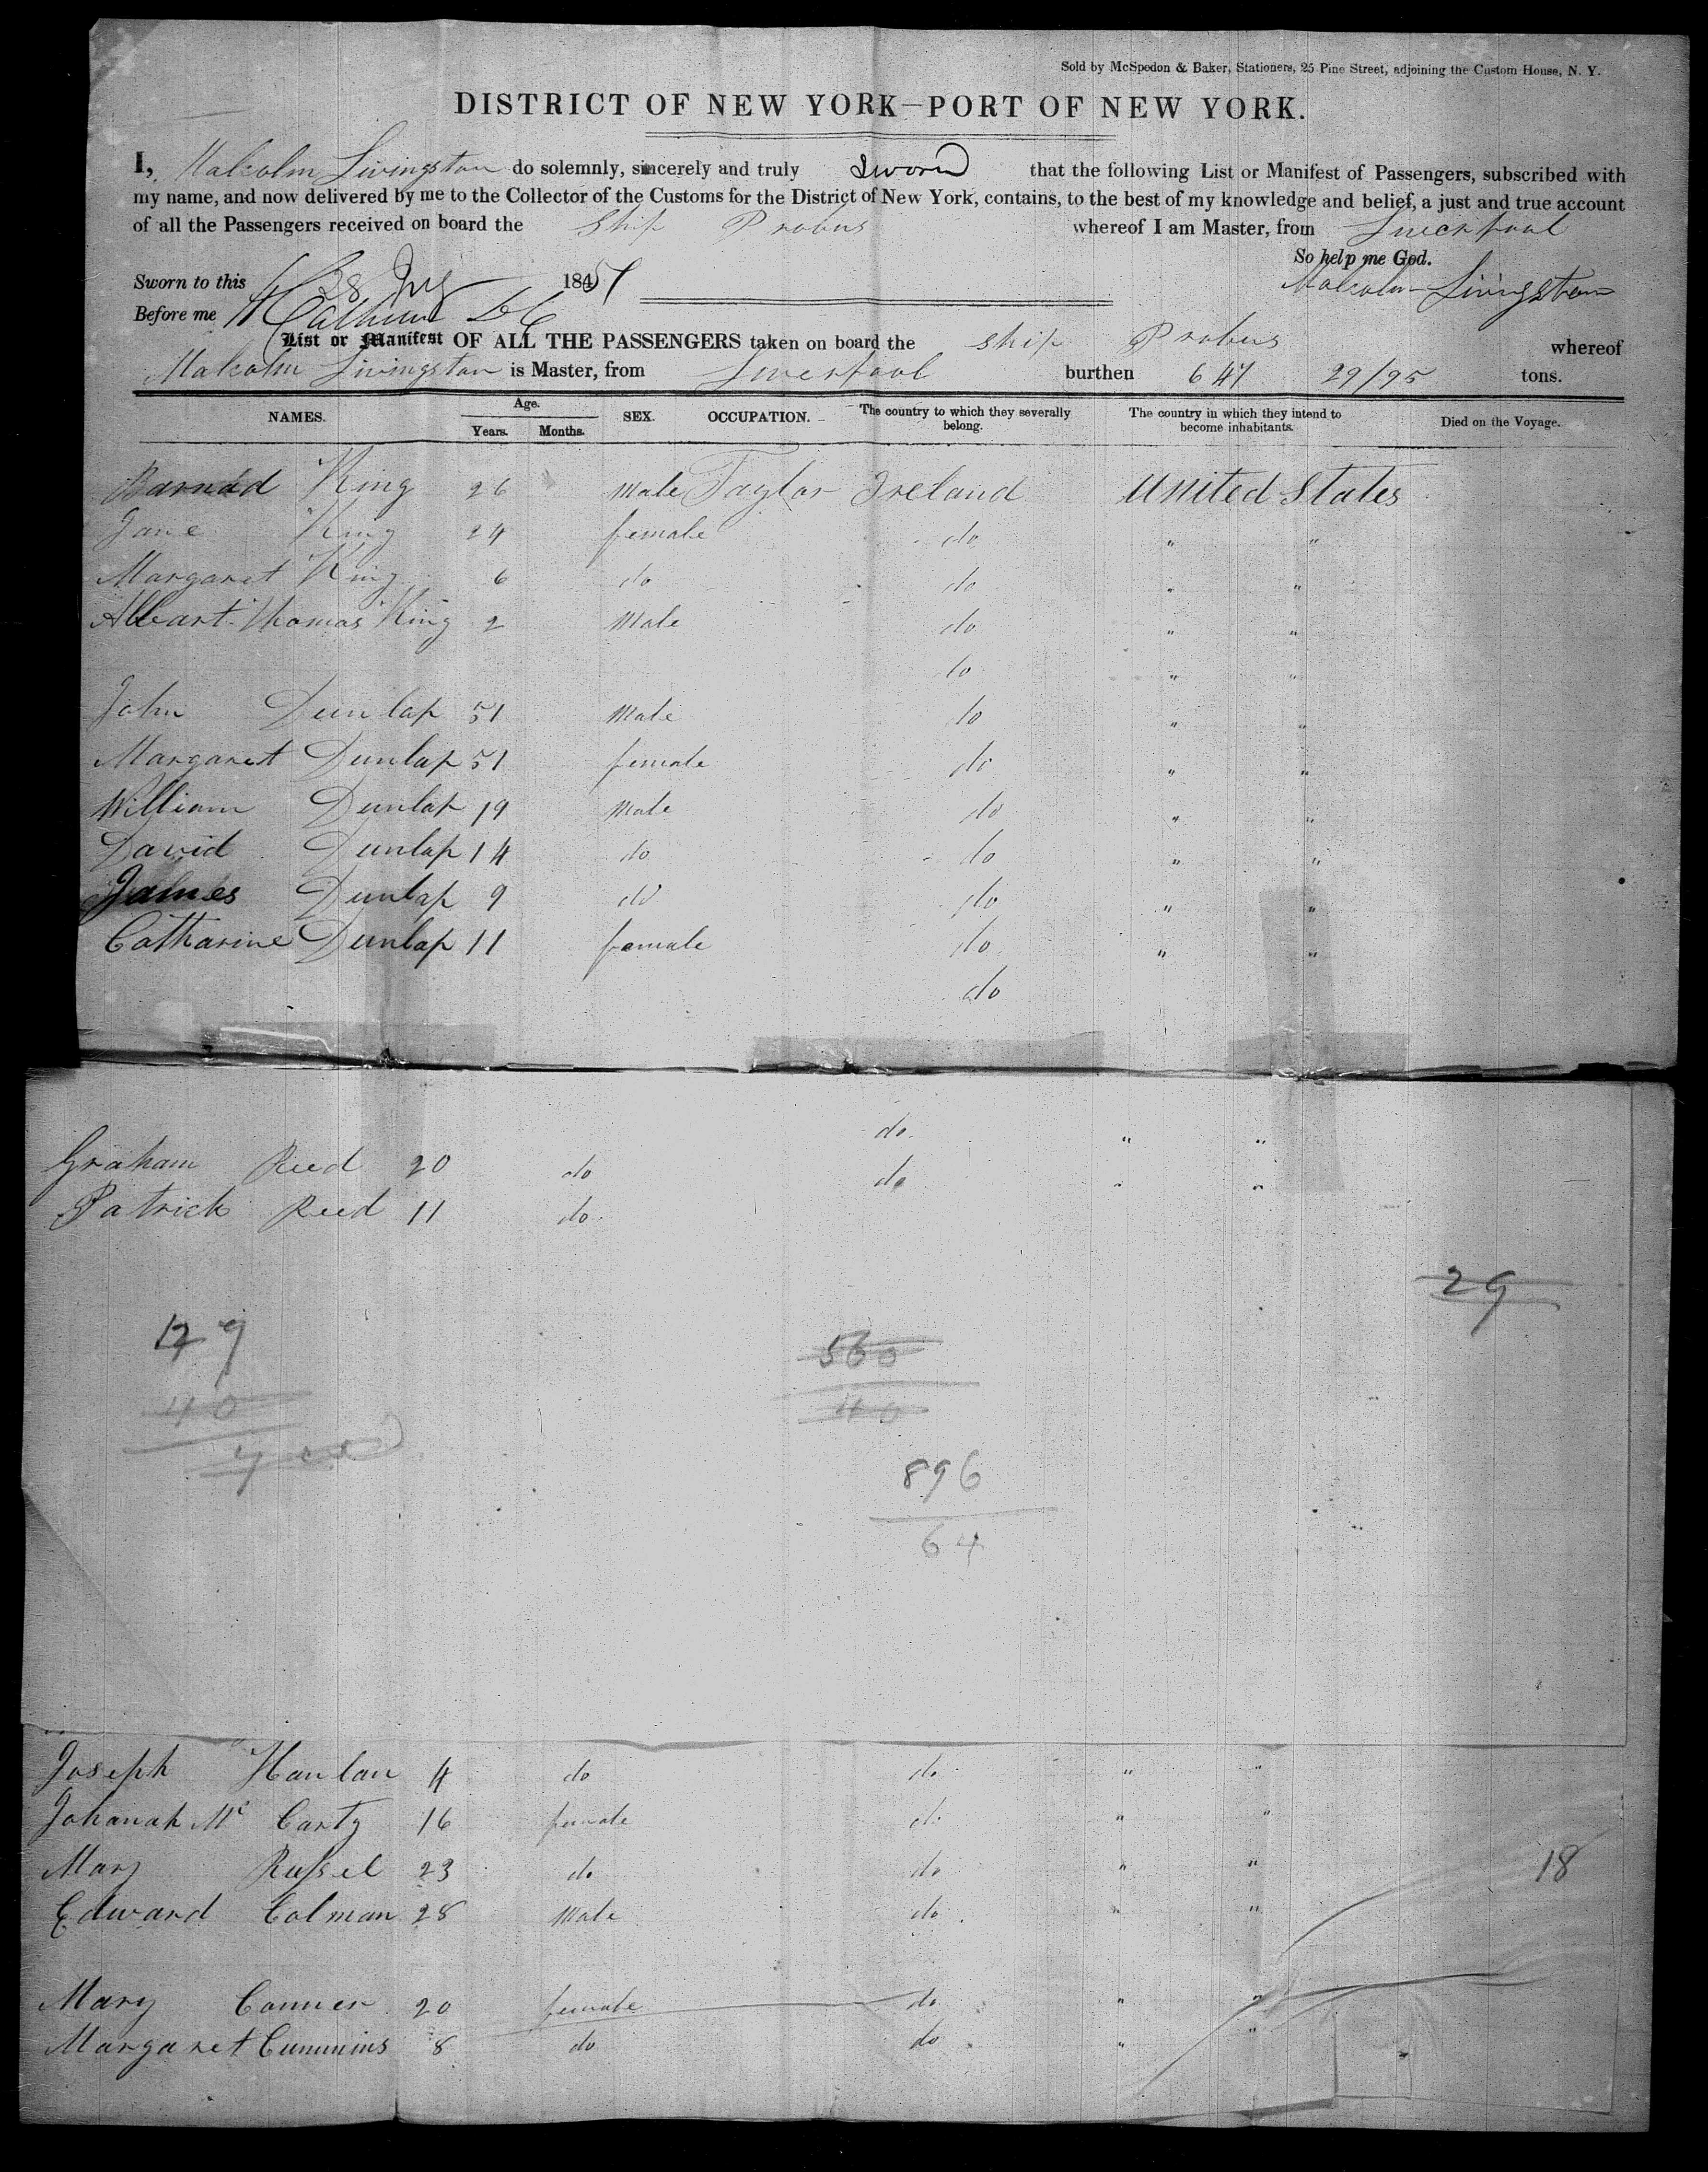 Sold by McSpedon & Baker, Stationers, 25 Pine Street, adjoining the Custom House, N. Y.
DISTRICT OF NEW YORK—PORT OF NEW YORK.
I, Malcolm Livingston do solemnly, sincerely and truly sworn that the following List or Manifest of Passengers, subscribed with
my name, and now delivered by me to the Collector of the Customs for the District of New York, contains, to the best of my knowledge and belief, a just and true account
of all the Passengers received on board the Ship Probus whereof I am Master, from Liverpool
So help me God.
Sworn to this 28 184 Malcolm Livingston
Before me
List or Manifest OF ALL THE PASSENGERS taken on board the ship Probus whereof
Malcolm Livingston is Master, from Liverpool burthen 647 29/95 tons.
NAMES. Age. Years. Months. SEX. OCCUPATION. The country to which they severally belong. The country in which they intend to become inhabitants. Died on the Voyage.
Barnad King 26 Male Taylor Ireland United States
Jane King 24 female do " "
Margaret King 6 do do " "
Albart Thomas King 2 Male do " "
do " "
John Dunlap 51 Male do " "
Margaret Dunlap 51 female do " "
William Dunlap 19 Male do " "
David Dunlap 14 do do " "
James Dunlap 9 do do " "
Catharine Dunlap 11 female do " "
do
do " "
Graham Reed 20 do do " "
Patrick Reed 11 do
29
560
40
40
896
64
Joseph Hanlan 4 do do " "
Johanah Mc Carty 16 female do " "
Mary Russel 23 do do " "
18
Edward Colman 28 Male do " "
Mary Conner 20 female do " "
Margaret Cummins 8 do do " "